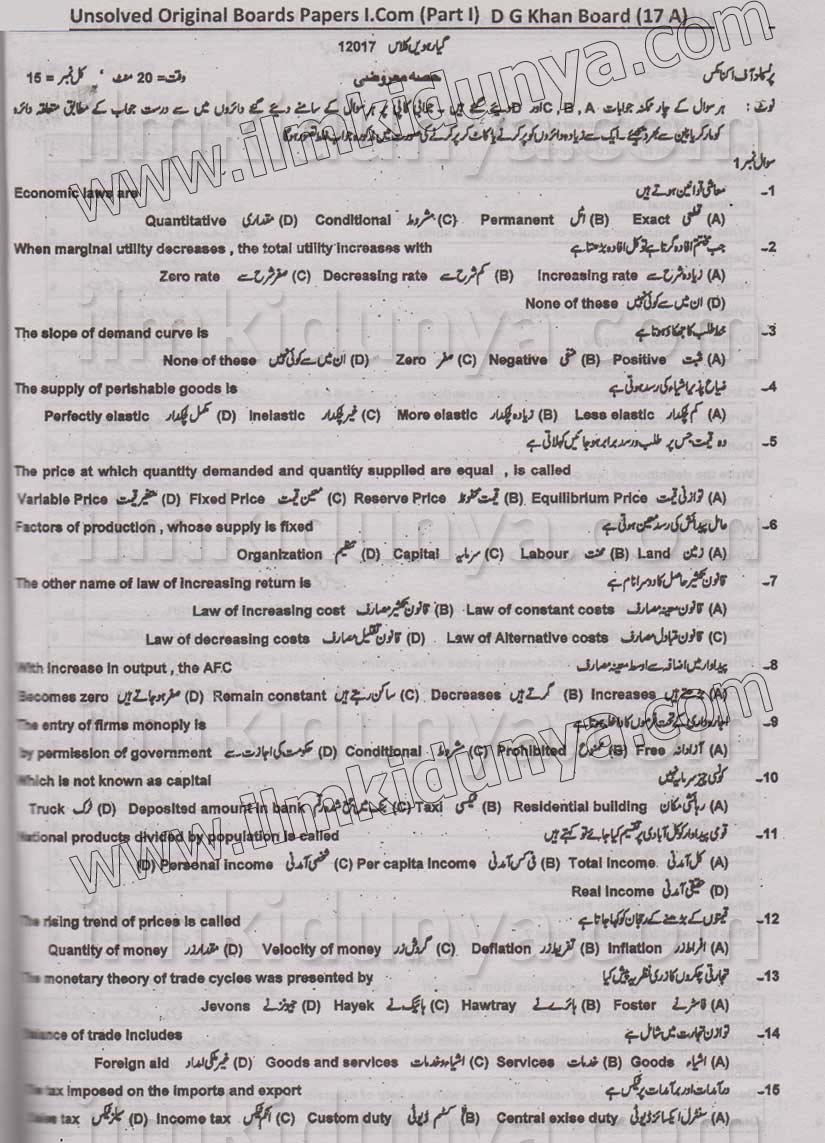 Unsolved Original Boards Papers I.Com (Part I) D G Khan Board (17 A)
گیارہویں کلاس 12017
پرنسپلز آف اکنامکس حصہ معروضی وقت = 20 منٹ کل نمبر = 15
نوٹ : ہر سوال کے چار ممکنہ جوابات A ، B ، C اور D دیئے گئے ہیں ۔ جوابی کاپی پر ہر سوال کے سامنے دیئے گئے دائروں میں سے درست جواب کے مطابق متعلقہ دائرہ
کو مارکر یا پین سے بھر دیجیئے ۔ ایک سے زیادہ دائروں کو پر کرنے یا کاٹ کر پر کرنے کی صورت میں مذکورہ جواب غلط تصور ہوگا
سوال نمبر 1
1- معاشی قوانین ہوتے ہیں Economic laws are
(A) قطعی Exact (B) اٹل Permanent (C) مشروط Conditional (D) مقداری Quantitative
2- جب مختتم افادہ گرتا ہے تو کل افادہ بڑھتا ہے When marginal utility decreases , the total utility increases with
(A) زیادہ شرح سے Increasing rate (B) کم شرح سے Decreasing rate (C) صفر شرح سے Zero rate
(D) ان میں سے کوئی نہیں None of these
3- خط طلب کا جھکاؤ ہوتا ہے The slope of demand curve is
(A) مثبت Positive (B) منفی Negative (C) صفر Zero (D) ان میں سے کوئی نہیں None of these
4- ضیاع پذیر اشیاء کی رسد ہوتی ہے The supply of perishable goods is
(A) کم لچکدار Less elastic (B) زیادہ لچکدار More elastic (C) غیر لچکدار Inelastic (D) مکمل لچکدار Perfectly elastic
5- وہ قیمت جس پر طلب و رسد برابر ہو جائیں کہلاتی ہے
The price at which quantity demanded and quantity supplied are equal , is called
(A) توازنی قیمت Equilibrium Price (B) قیمت محفوظ Reserve Price (C) معین قیمت Fixed Price (D) متغیر قیمت Variable Price
6- عامل پیدائش کی رسد معین ہوتی ہے Factors of production , whose supply is fixed
(A) زمین Land (B) محنت Labour (C) سرمایہ Capital (D) تنظیم Organization
7- قانون تکثیر حاصل کا دوسرا نام ہے The other name of law of increasing return is
(A) قانون معینہ مصارف Law of constant costs (B) قانون تکثیر مصارف Law of increasing cost
(C) قانون متبادل مصارف Law of Alternative costs (D) قانون تقلیل مصارف Law of decreasing costs
8- پیداوار میں اضافہ سے اوسط معینہ مصارف With increase in output , the AFC
(A) بڑھتے ہیں Increases (B) گرتے ہیں Decreases (C) ساکن رہتے ہیں Remain constant (D) صفر ہو جاتے ہیں Becomes zero
9- اجارہ داری کے تحت فرموں کا داخلہ ہوتا ہے The entry of firms monoply is
(A) آزادانہ Free (B) ممنوع Prohibited (C) مشروط Conditional (D) حکومت کی اجازت سے by permission of government
10- کونسی چیز سرمایہ نہیں Which is not known as capital
(A) رہائشی مکان Residential building (B) ٹیکسی Taxi (C) بینک میں جمع شدہ رقم Deposited amount in bank (D) ٹرک Truck
11- قومی پیداوار کو کل آبادی پر تقسیم کیا جائے تو کہتے ہیں National products divided by population is called
(A) کل آمدنی Total Income. (B) فی کس آمدنی Per capita Income (C) شخصی آمدنی Personal income (D)
(D) حقیقی آمدنی Real Income
12- قیمتوں کے بڑھنے کے رجحان کو کہا جاتا ہے The rising trend of prices is called
(A) افراط زر Inflation (B) تفریط زر Deflation (C) گردش زر Velocity of money (D) مقدار زر Quantity of money
13- تجارتی چکروں کا زری نظریہ پیش کیا The monetary theory of trade cycles was presented by
(A) فاسٹر نے Foster (B) ہاٹرے نے Hawtray (C) ہائیک نے Hayek (D) جیونز نے Jevons
14- توازن تجارت میں شامل ہے Balance of trade includes
(A) اشیاء Goods (B) خدمات Services (C) اشیاء و خدمات Goods and services (D) غیر ملکی امداد Foreign aid
15- درآمدات اور برآمدات پر ٹیکس ہے The tax imposed on the imports and export
(A) سنٹرل ایکسائز ڈیوٹی Central exise duty (B) کسٹم ڈیوٹی Custom duty (C) انکم ٹیکس Income tax (D) سیلز ٹیکس Sales tax
www.ilmkidunya.com
www.ilmkidunya.com
ilmkidunya.com